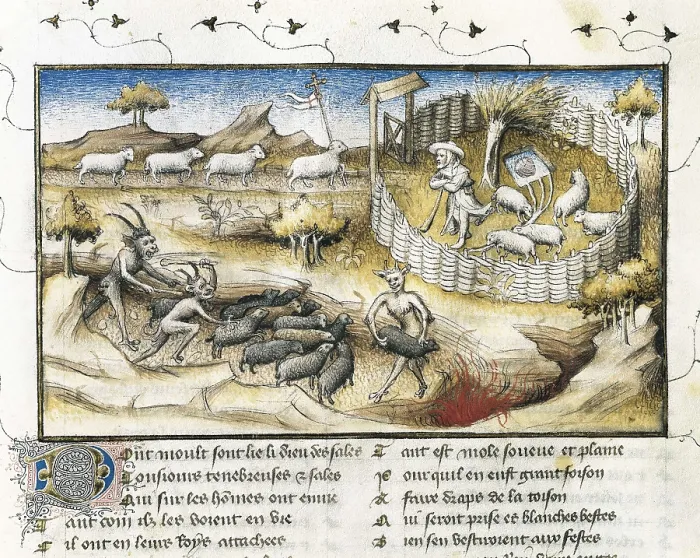 Dont moult sont lie li dieu des sales
Tousiours tenebreuses & sales
Qui sur les hõmes ont enuie
Tant com ilz les voient en vie
il ont en leurs Roys attachees
Tant est mole soueue et plaine
Pour quil en eust grant foison
A faire draps de la toison
Qui seront prise es blanches bestes
Bien sen vestiroient aux festes